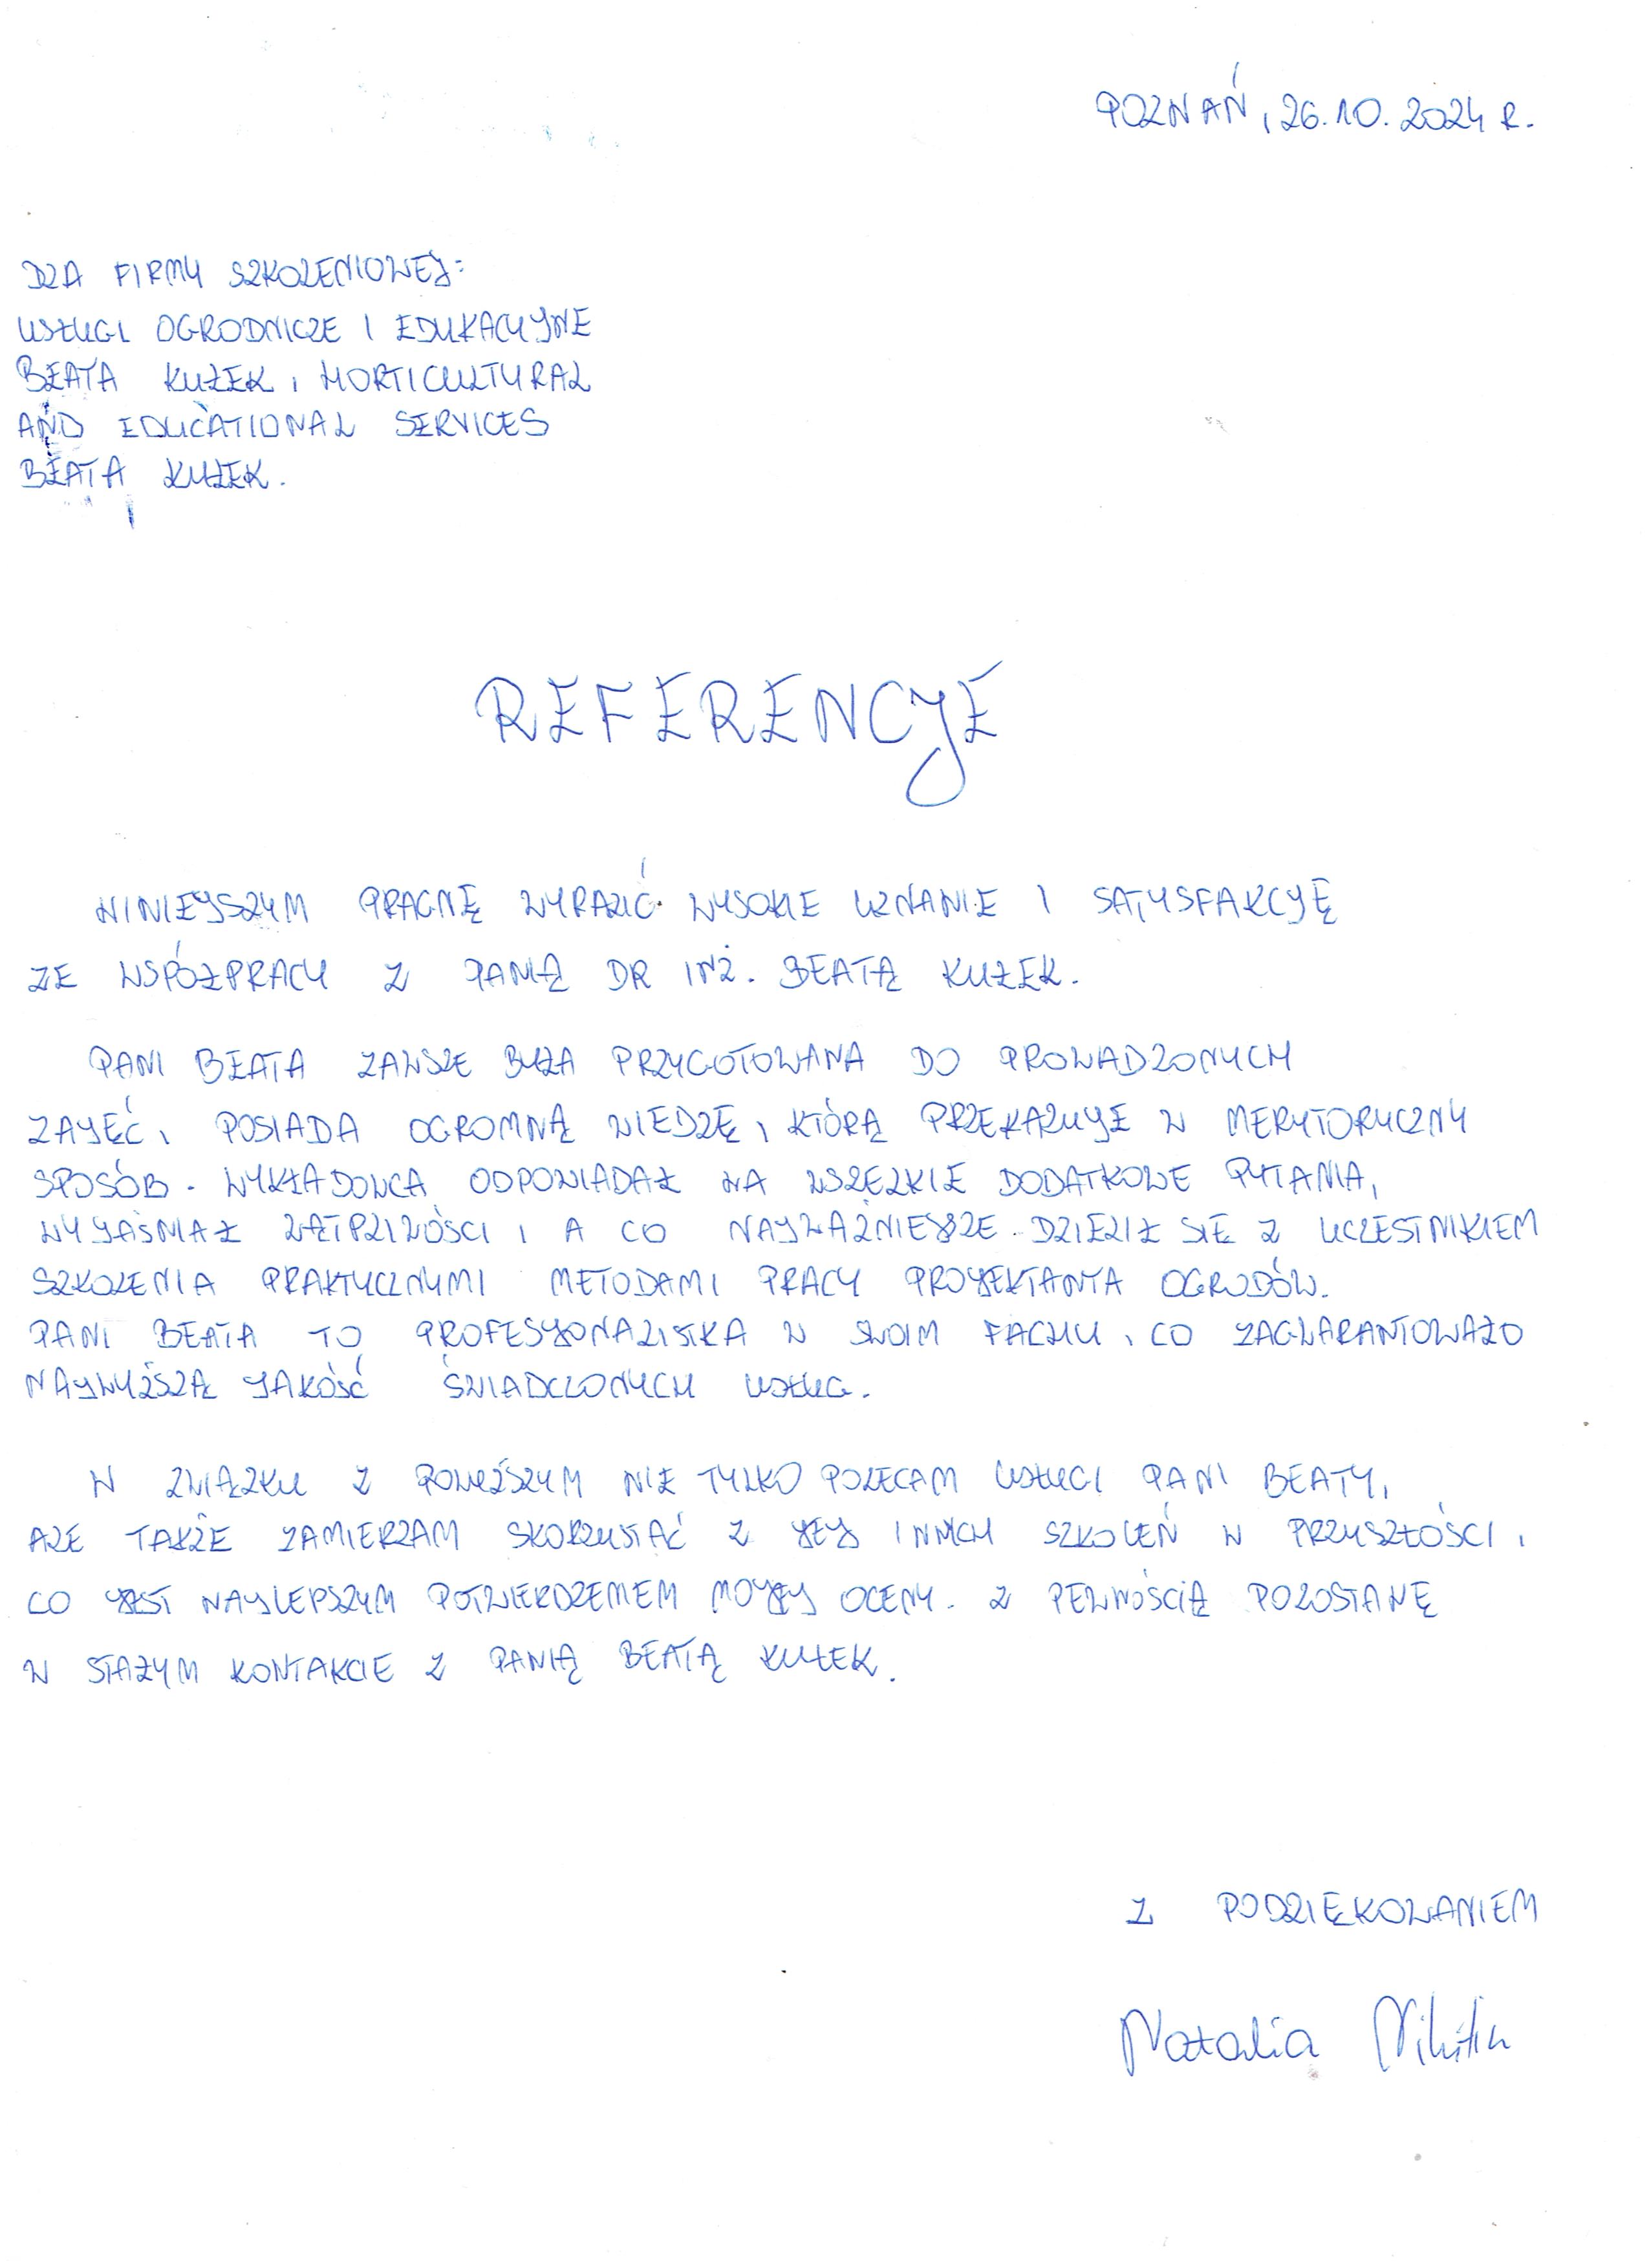 POZNAŃ, 26.10.2024 R.
DLA FIRMY SZKOLENIOWEJ:
USŁUGI OGRODNICZE I EDUKACYJNE
BEATA KUŁEK, HORTICULTURAL
AND EDUCATIONAL SERVICES
BEATA KUŁEK.
REFERENCJE
NINIEJSZYM PRAGNĘ WYRAZIĆ WYSOKIE UZNANIE I SATYSFAKCJĘ
ZE WSPÓŁPRACY Z PANIĄ DR INŻ. BEATĄ KUŁEK.
PANI BEATA ZAWSZE BYŁA PRZYGOTOWANA DO PROWADZONYCH
ZAJĘĆ, POSIADA OGROMNĄ WIEDZĘ, KTÓRĄ PRZEKAZUJE W MERYTORYCZNY
SPOSÓB. WYKŁADOWCA ODPOWIADAŁ NA WSZELKIE DODATKOWE PYTANIA,
WYJAŚNIAŁ WĄTPLIWOŚCI, A CO NAJWAŻNIEJSZE DZIELIŁ SIĘ Z UCZESTNIKIEM
SZKOLENIA PRAKTYCZNYMI METODAMI PRACY PROJEKTANTA OGRODÓW.
PANI BEATA TO PROFESJONALISTKA W SWOIM FACHU, CO ZAGWARANTOWAŁO
NAJWYŻSZĄ JAKOŚĆ ŚWIADCZONYCH USŁUG.
W ZWIĄZKU Z POWYŻSZYM NIE TYLKO POLECAM USŁUGI PANI BEATY,
ALE TAKŻE ZAMIERZAM SKORZYSTAĆ Z JEJ INNYCH SZKOLEŃ W PRZYSZŁOŚCI,
CO JEST NAJLEPSZYM POTWIERDZENIEM MOJEJ OCENY. Z PEWNOŚCIĄ POZOSTANĘ
W STAŁYM KONTAKCIE Z PANIĄ BEATĄ KUŁEK.
Z PODZIĘKOWANIEM
Natalia Nikitin